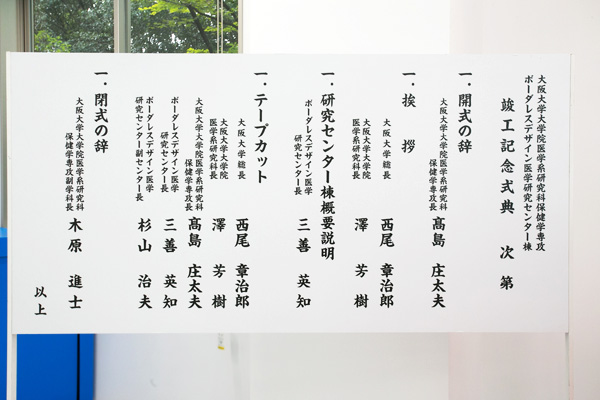 大阪大学大学院医学系研究科保健学専攻
ボーダレスデザイン医学研究センター棟
竣工記念式典 次第
一．開式の辞
大阪大学大学院医学系研究科
保健学専攻長 髙島 庄太夫
一．挨拶
大阪大学総長 西尾 章治郎
大阪大学大学院
医学系研究科長 澤 芳樹
一．研究センター棟概要説明
ボーダレスデザイン医学
研究センター長 三善 英知
一．テープカット
大阪大学総長 西尾 章治郎
大阪大学大学院
医学系研究科長 澤 芳樹
大阪大学大学院医学系研究科
保健学専攻長 髙島 庄太夫
ボーダレスデザイン医学
研究センター長 三善 英知
ボーダレスデザイン医学
研究センター副センター長 杉山 治夫
一．閉式の辞
大阪大学大学院医学系研究科
保健学専攻副学科長 木原 進士
以上